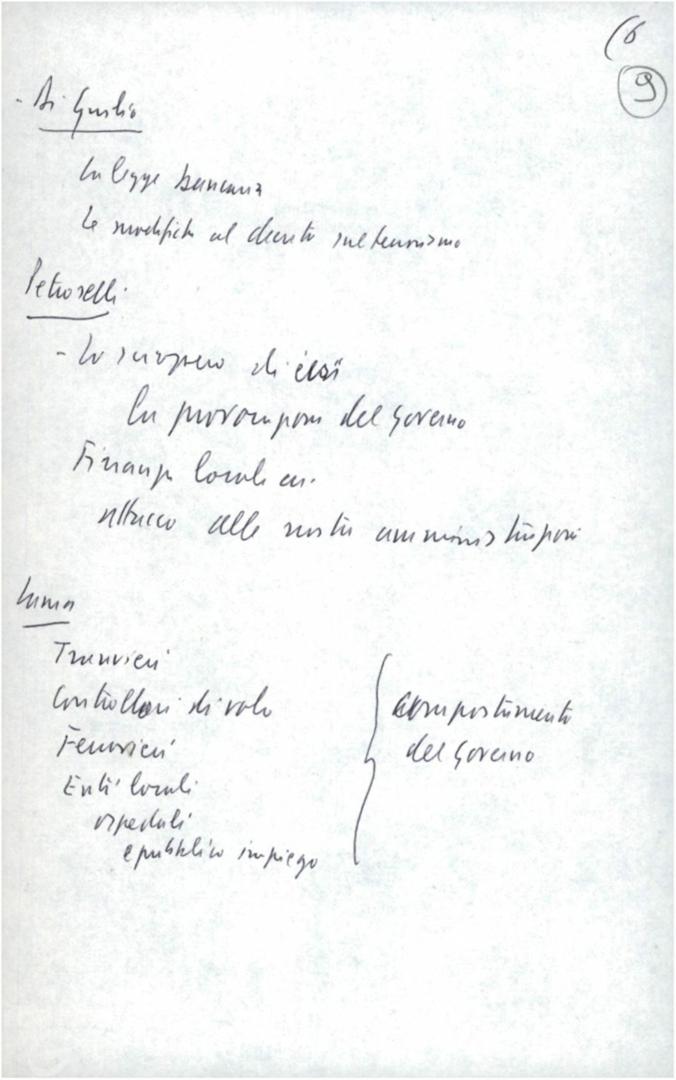 (6
9
- Di Giulio
La legge bancaria
Le modifiche al decreto sul terrorismo
Petroselli
- Lo sciopero di
La provocazione del Governo
Finanza locale
attacco alle nostre amministrazioni
Lama
Tranvieri
Controllori di volo
Ferrovieri
Enti locali
ospedali
e pubblico impiego
comportamento
del Governo